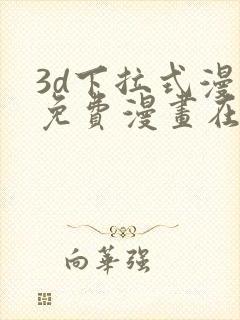 3d下拉式漫
免費漫畫在
向華强